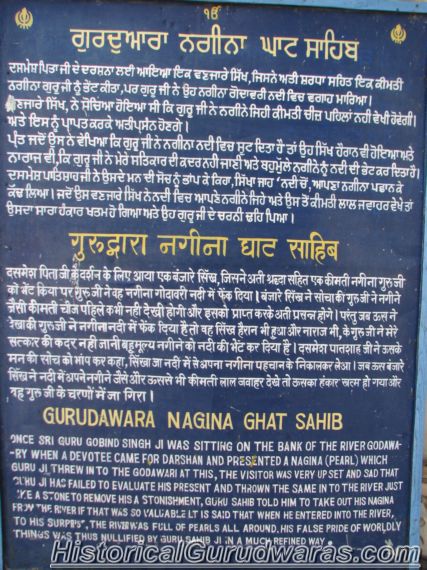 ੴ
ਗੁਰਦੁਆਰਾ ਨਗੀਨਾ ਘਾਟ ਸਾਹਿਬ
ਦਸਮੇਸ਼ ਪਿਤਾ ਜੀ ਦੇ ਦਰਸ਼ਨਾ ਲਈ ਆਇਆ ਇਕ ਵਣਜਾਰੇ ਸਿੱਖ, ਜਿਸਨੇ ਅਤੀ ਸ਼ਰਧਾ ਸਹਿਤ ਇਕ ਕੀਮਤੀ
ਨਗੀਨਾ ਗੁਰੂ ਜੀ ਨੂੰ ਭੇਟ ਕੀਤਾ, ਪਰ ਗੁਰੂ ਜੀ ਨੇ ਉਹ ਨਗੀਨਾ ਗੋਦਾਵਰੀ ਨਦੀ ਵਿਚ ਵਗਾਹ ਮਾਰਿਆ।
ਵਣਜਾਰੇ ਸਿੱਖ, ਨੇ ਸੋਚਿਆ ਹੋਇਆ ਸੀ ਕਿ ਗੁਰੂ ਜੀ ਨੇ ਨਗੀਨੇ ਜਿਹੀ ਕੀਮਤੀ ਚੀਜ਼ ਪਹਿਲਾਂ ਨਹੀਂ ਵੇਖੀ ਹੋਵੇਗੀ।
ਅਤੇ ਇਸ ਨੂੰ ਪ੍ਰਾਪਤ ਕਰਕੇ ਅਤੀ ਪ੍ਰਸੰਨ ਹੋਣਗੇ।
ਪ੍ਰੰਤੂ ਜਦੋਂ ਉਸ ਨੇ ਵੇਖਿਆ ਕਿ ਗੁਰੂ ਜੀ ਨੇ ਨਗੀਨਾ ਨਦੀ ਵਿਚ ਸੁਟ ਦਿਤਾ ਹੈ ਤਾਂ ਉਹ ਸਿੱਖ ਹੈਰਾਨ ਵੀ ਹੋਇਆ ਅਤੇ
ਨਾਰਾਜ਼ ਵੀ, ਕਿ ਗੁਰੂ ਜੀ ਨੇ ਮੇਰੇ ਸਤਿਕਾਰ ਦੀ ਕਦਰ ਨਹੀਂ ਜਾਣੀ ਅਤੇ ਬਹੁਮੁੱਲੇ ਨਗੀਨੇ ਨੂੰ ਨਦੀ ਦੀ ਭੇਟ ਕਰ ਦਿਤਾ ਹੈ।
ਦਸਮੇਸ਼ ਪਾਤਿਸ਼ਾਹ ਜੀ ਨੇ ਉਸਦੇ ਮਨ ਦੀ ਸੋਚ ਨੂੰ ਭਾਂਪ ਕੇ ਕਿਹਾ, ਸਿੱਖਾ ਜਾਹ 'ਨਦੀ ਚੋਂ, ਆਪਣਾ ਨਗੀਨਾ ਪਛਾਨ ਕੇ
ਕੱਢ ਲਿਆ। ਜਦੋਂ ਉਸ ਵਣਜਾਰੇ ਸਿੱਖ ਨੇ ਨਦੀ ਵਿਚ ਆਪਣੇ ਨਗੀਨੇ ਜਿਹੇ ਅਤੇ ਉਸ ਤੋਂ ਕੀਮਤੀ ਲਾਲ ਜਵਾਹਰ ਵੇਖੇ ਤਾਂ
ਉਸਦਾ ਸਾਰਾ ਹੰਕਾਰ ਖਤਮ ਹੋ ਗਿਆ ਅਤੇ ਉਹ ਗੁਰੂ ਜੀ ਦੇ ਚਰਨੀ ਢਹਿ ਪਿਆ।
गुरुद्वारा नगीना घाट साहिब
दसमेश पिता जी के दर्शन के लिए आया एक बंजारे सिंख, जिसने अती श्रद्धा सहित एक कीमती नगीना गुरु जी
को भेंट किया पर गुरु जी ने वह नगीना गोदावरी नदी में फेंक दिया। बंजारे सिंख ने सोचा की गुरु जी ने नगीने
जैसी कीमती चीज पहिले कभी नही देखी होगी और इसको प्राप्त करके अती प्रसन्न होंगे। परंतु जब उस ने
देखा की गुरु जी ने नगीना नदी में फेंक दिया है तो वह सिंख हैरान भी हुआ और नाराज भी, के गुरु जी ने मेरे
सत्कार की कदर नही जानी बहुमूल्य नगीने को नदी की भेंट कर दिया है। दसमेश पातशाह जी ने उसके
मन की सोच को भांप कर कहा, सिंखा जा नदी में से अपना नगीना पहचान के निकालकर लेआ। जब उस बंजारे
सिंख ने नदी में अपने नगीने जैसे और उससे भी कीमती लाल जवाहर देखे तो उसका हंकार खत्म हो गया और
वह गुरु जी के चरणों में जा गिरा।
GURUDAWARA NAGINA GHAT SAHIB
ONCE SRI GURU GOBIND SINGH JI WAS SITTING ON THE BANK OF THE RIVER GODAWA-
RY WHEN A DEVOTEE CAME FOR DARSHAN AND PRESENTED A NAGINA (PEARL) WHICH
GURU JI THREW IN TO THE GODAWARI AT THIS, THE VISITOR WAS VERY UP SET AND SAD THAT
GURU JI HAS FAILED TO EVALUATE HIS PRESENT AND THROWN THE SAME IN TO THE RIVER JUST
LIKE A STONE TO REMOVE HIS A STONISHMENT, GURU SAHIB TOLD HIM TO TAKE OUT HIS NAGINA
FROM THE RIVER IF THAT WAS SO VALUABLE IT IS SAID THAT WHEN HE ENTERED IN TO THE RIVER,
TO HIS SURPRIS, THE RIVER WAS FULL OF PEARLS ALL AROUND. HIS FALSE PRIDE OF WORLDLY
THINGS WAS THUS NULLIFIED BY GURU SAHIB JI IN A MUCH REFINED WAY.
HistoricalGurudwaras.com